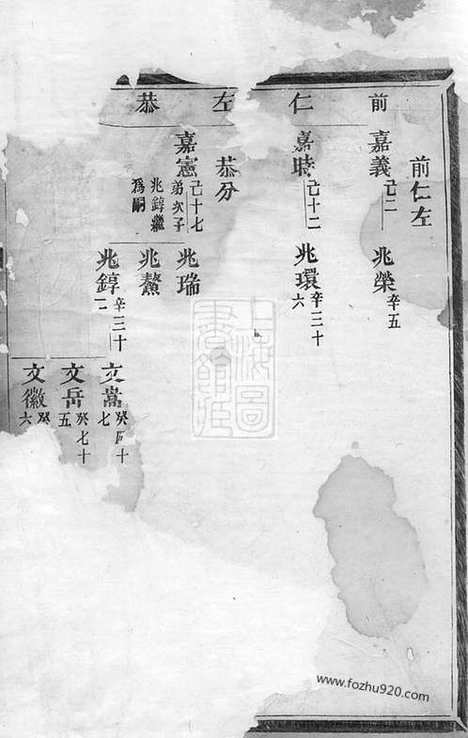 前仁左
前
嘉義 己二 兆榮 辛五
仁
嘉時 己十二 兆環 辛三十六
左
恭分
恭
嘉憲 己十七 弟次子兆錞繼爲嗣
兆瑞
兆鰲
兆錞 辛三十一
文嵩
文岳 癸七十五
文徽 癸 六
上海圖書館藏
www.fozhu920.com